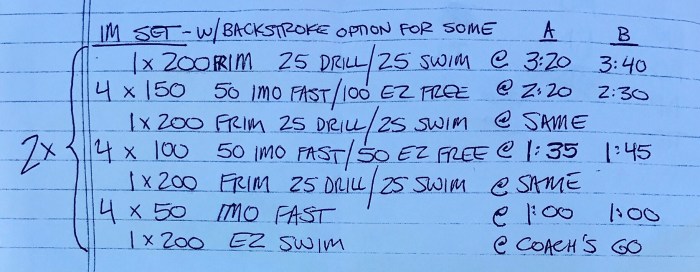 IM SET - W/BACKSTROKE OPTION FOR SOME A B
1 x 200 FRIM 25 DRILL/25 SWIM @ 3:20 3:40
4 x 150 50 IMO FAST/100 EZ FREE @ 2:20 2:30
1 x 200 FRIM 25 DRILL/25 SWIM @ SAME
2x 4 x 100 50 IMO FAST/50 EZ FREE @ 1:35 1:45
1 x 200 FRIM 25 DRILL/25 SWIM @ SAME
4 x 50 IMO FAST @ 1:00 1:00
1 x 200 EZ SWIM @ COACH'S GO